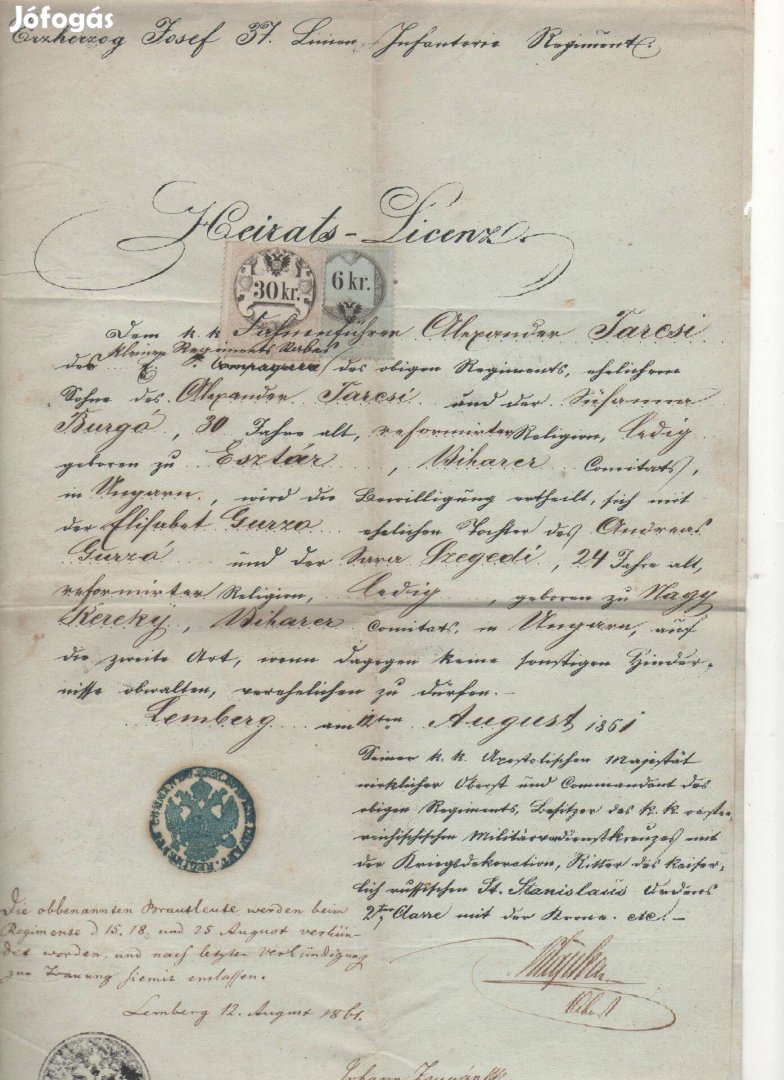 Jófogás
Erzherzog Josef 37. Linien Infanterie Regiment.
Heirats-Licenz.
30 kr.
6 kr.
Dem k. k. Fahnenführer Alexander Tarcsi
des Regiments Stabes
Compagnie des obigen Regiments, ehelichem
Sohne des Alexander Tarcsi und der Susanna
Burgó, 30 Jahre alt, reformirter Religion, ledig
geboren zu Esztár, Biharer Comitats,
in Ungarn, wird die Bewilligung ertheilt, sich mit
der Elisabet Gurzo ehelichen Tochter des Andreas
Gurzó und der Sara Szegedi, 24 Jahre alt,
reformirter Religion, ledig, geboren zu Nagy
Kereky, Biharer Comitats, in Ungarn, auf
die zweite Art, wenn dagegen keine sonstigen Hinder-
nisse obwalten, verehelichen zu dürfen.-
Lemberg am 12ten August 1861
Seiner k. k. Apostolischen Majestät
wirklicher Oberst und Commandant des
obigen Regiments, Besitzer des k. k. oester-
reichischen Militärverdienstkreuzes mit
der Kriegsdekoration, Ritter des kaiser-
lich russischen St. Stanislaus Ordens
2ter Classe mit der Krone. etc.-
Die obbenannten Brautleute werden beim
Regimente d 15. 18. und 25 August verkün-
det worden, und nach letzter Verkündigung
zur Trauung hiemit entlassen.
Lemberg 12. August 1861.
Oberst
Johann